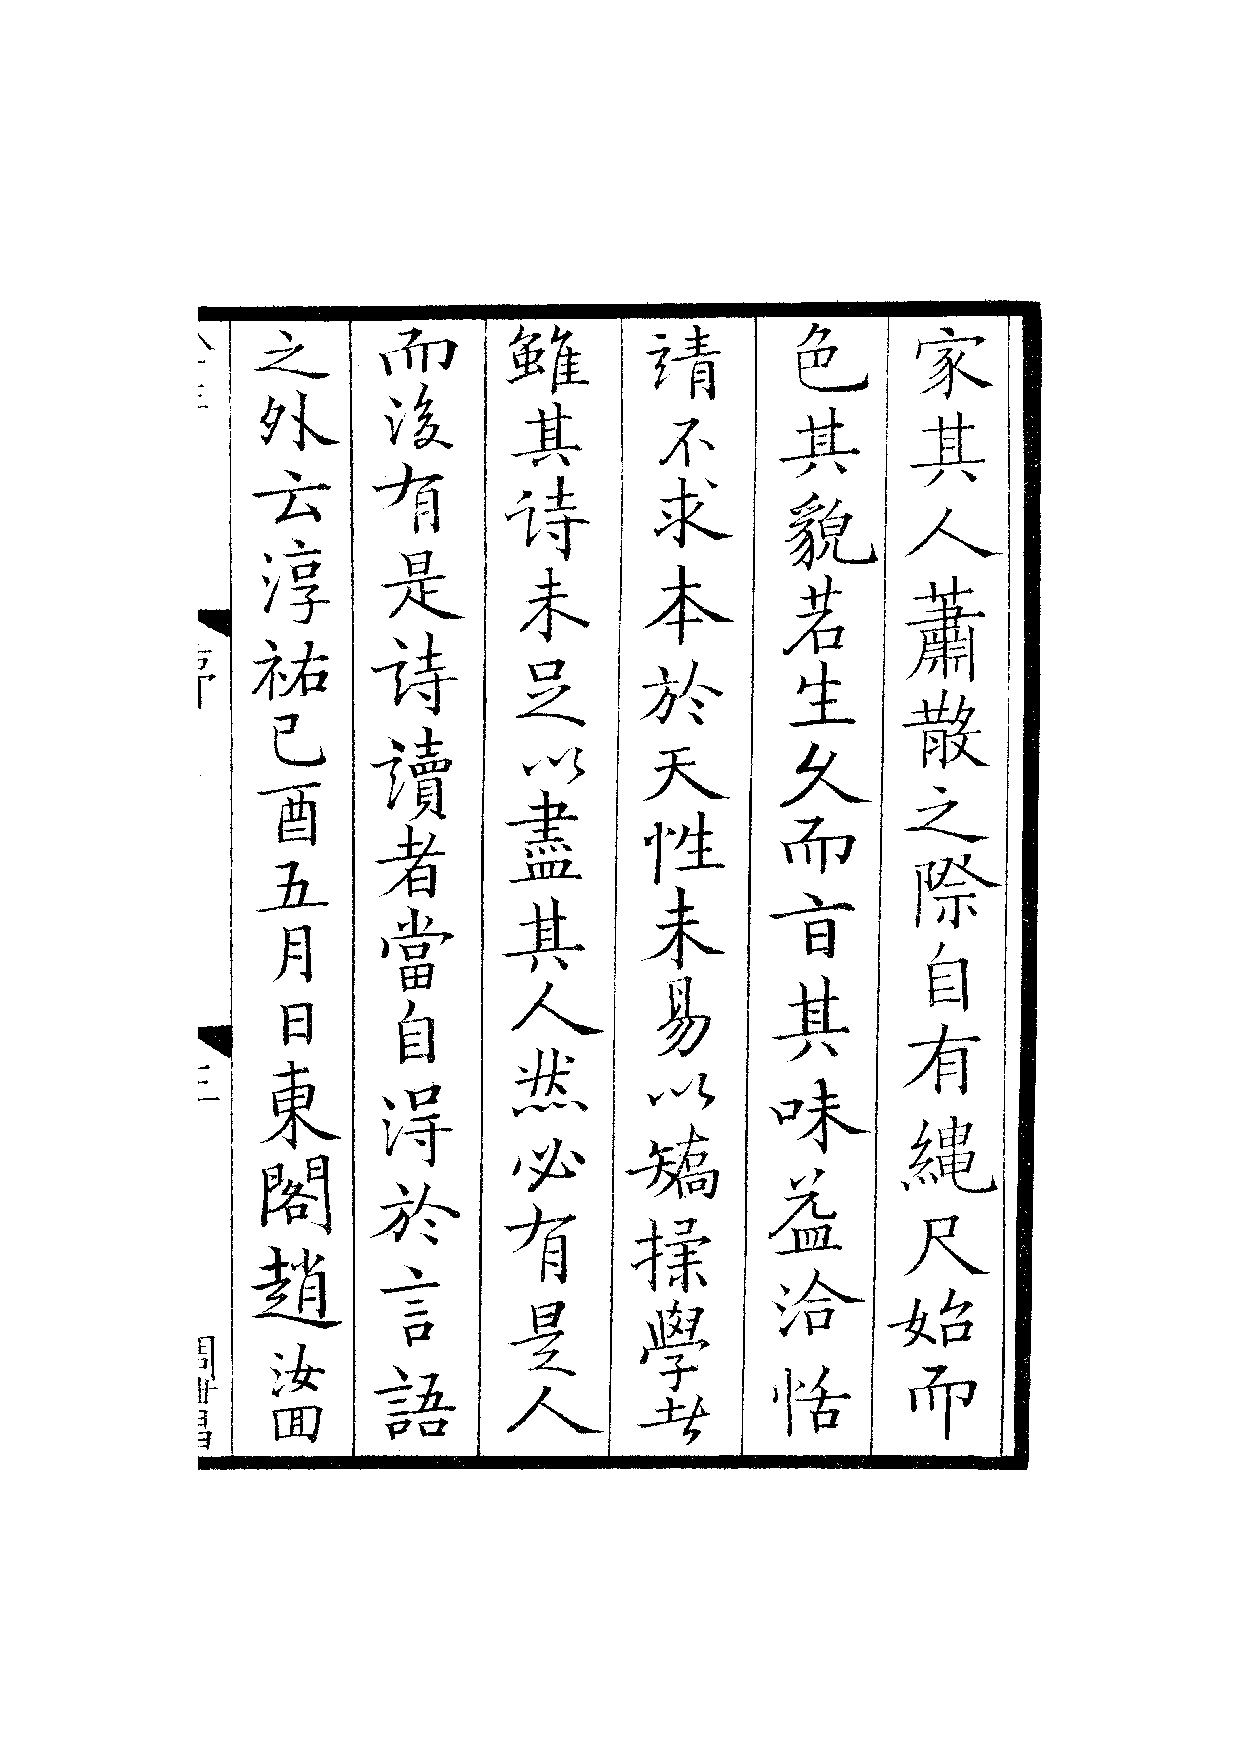 家其人蕭散之際自有繩尺始而
色其貌若生久而盲其味益洽恬
靖不求本於天性未易以矯揉學者
雖其詩未足以盡其人然必有是人
而後有是詩讀者當自得於言語
之外云淳祐己酉五月日東閣趙汝回
序
三